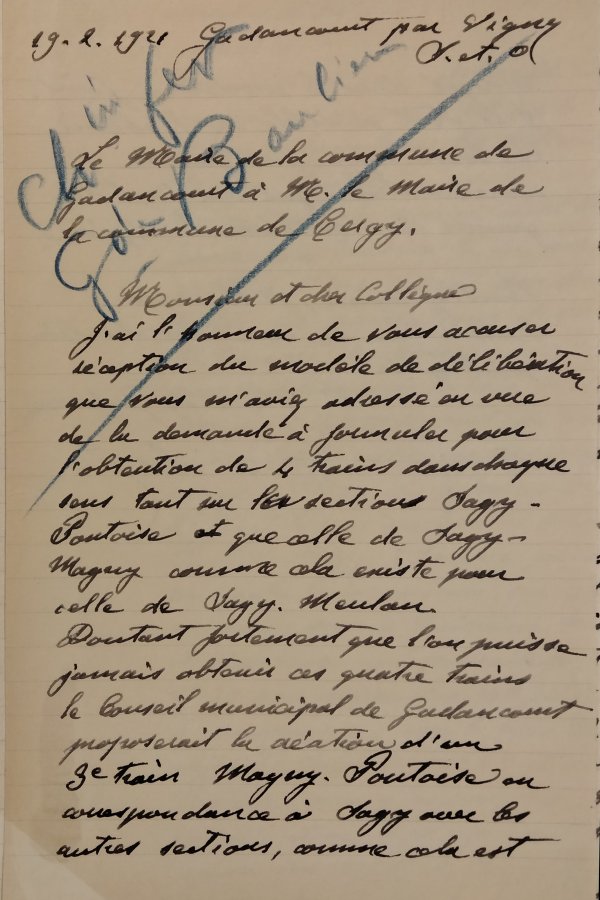 19.2.1921 Gadancourt par Vigny
S. et. O
Chin fer
Go - Banlieue
Le Maire de la commune de
Gadancourt à M. le Maire de
la commune de Cergy.
Monsieur et cher Collègue
J'ai l'honneur de vous accuser
réception du modèle de délibération
que vous m'aviez adressé en vue
de la demande à formuler pour
l'obtention de 4 trains dans chaque
sens tant sur les sections Sagy-
Pontoise et que celle de Sagy-
Magny comme cela existe pour
celle de Sagy-Meulan.
Doutant fortement que l'on puisse
jamais obtenir ces quatre trains
le Conseil municipal de Gadancourt
proposerait la création d'un
3e train Magny-Pontoise en
correspondance à Sagy avec les
autres sections, comme cela est